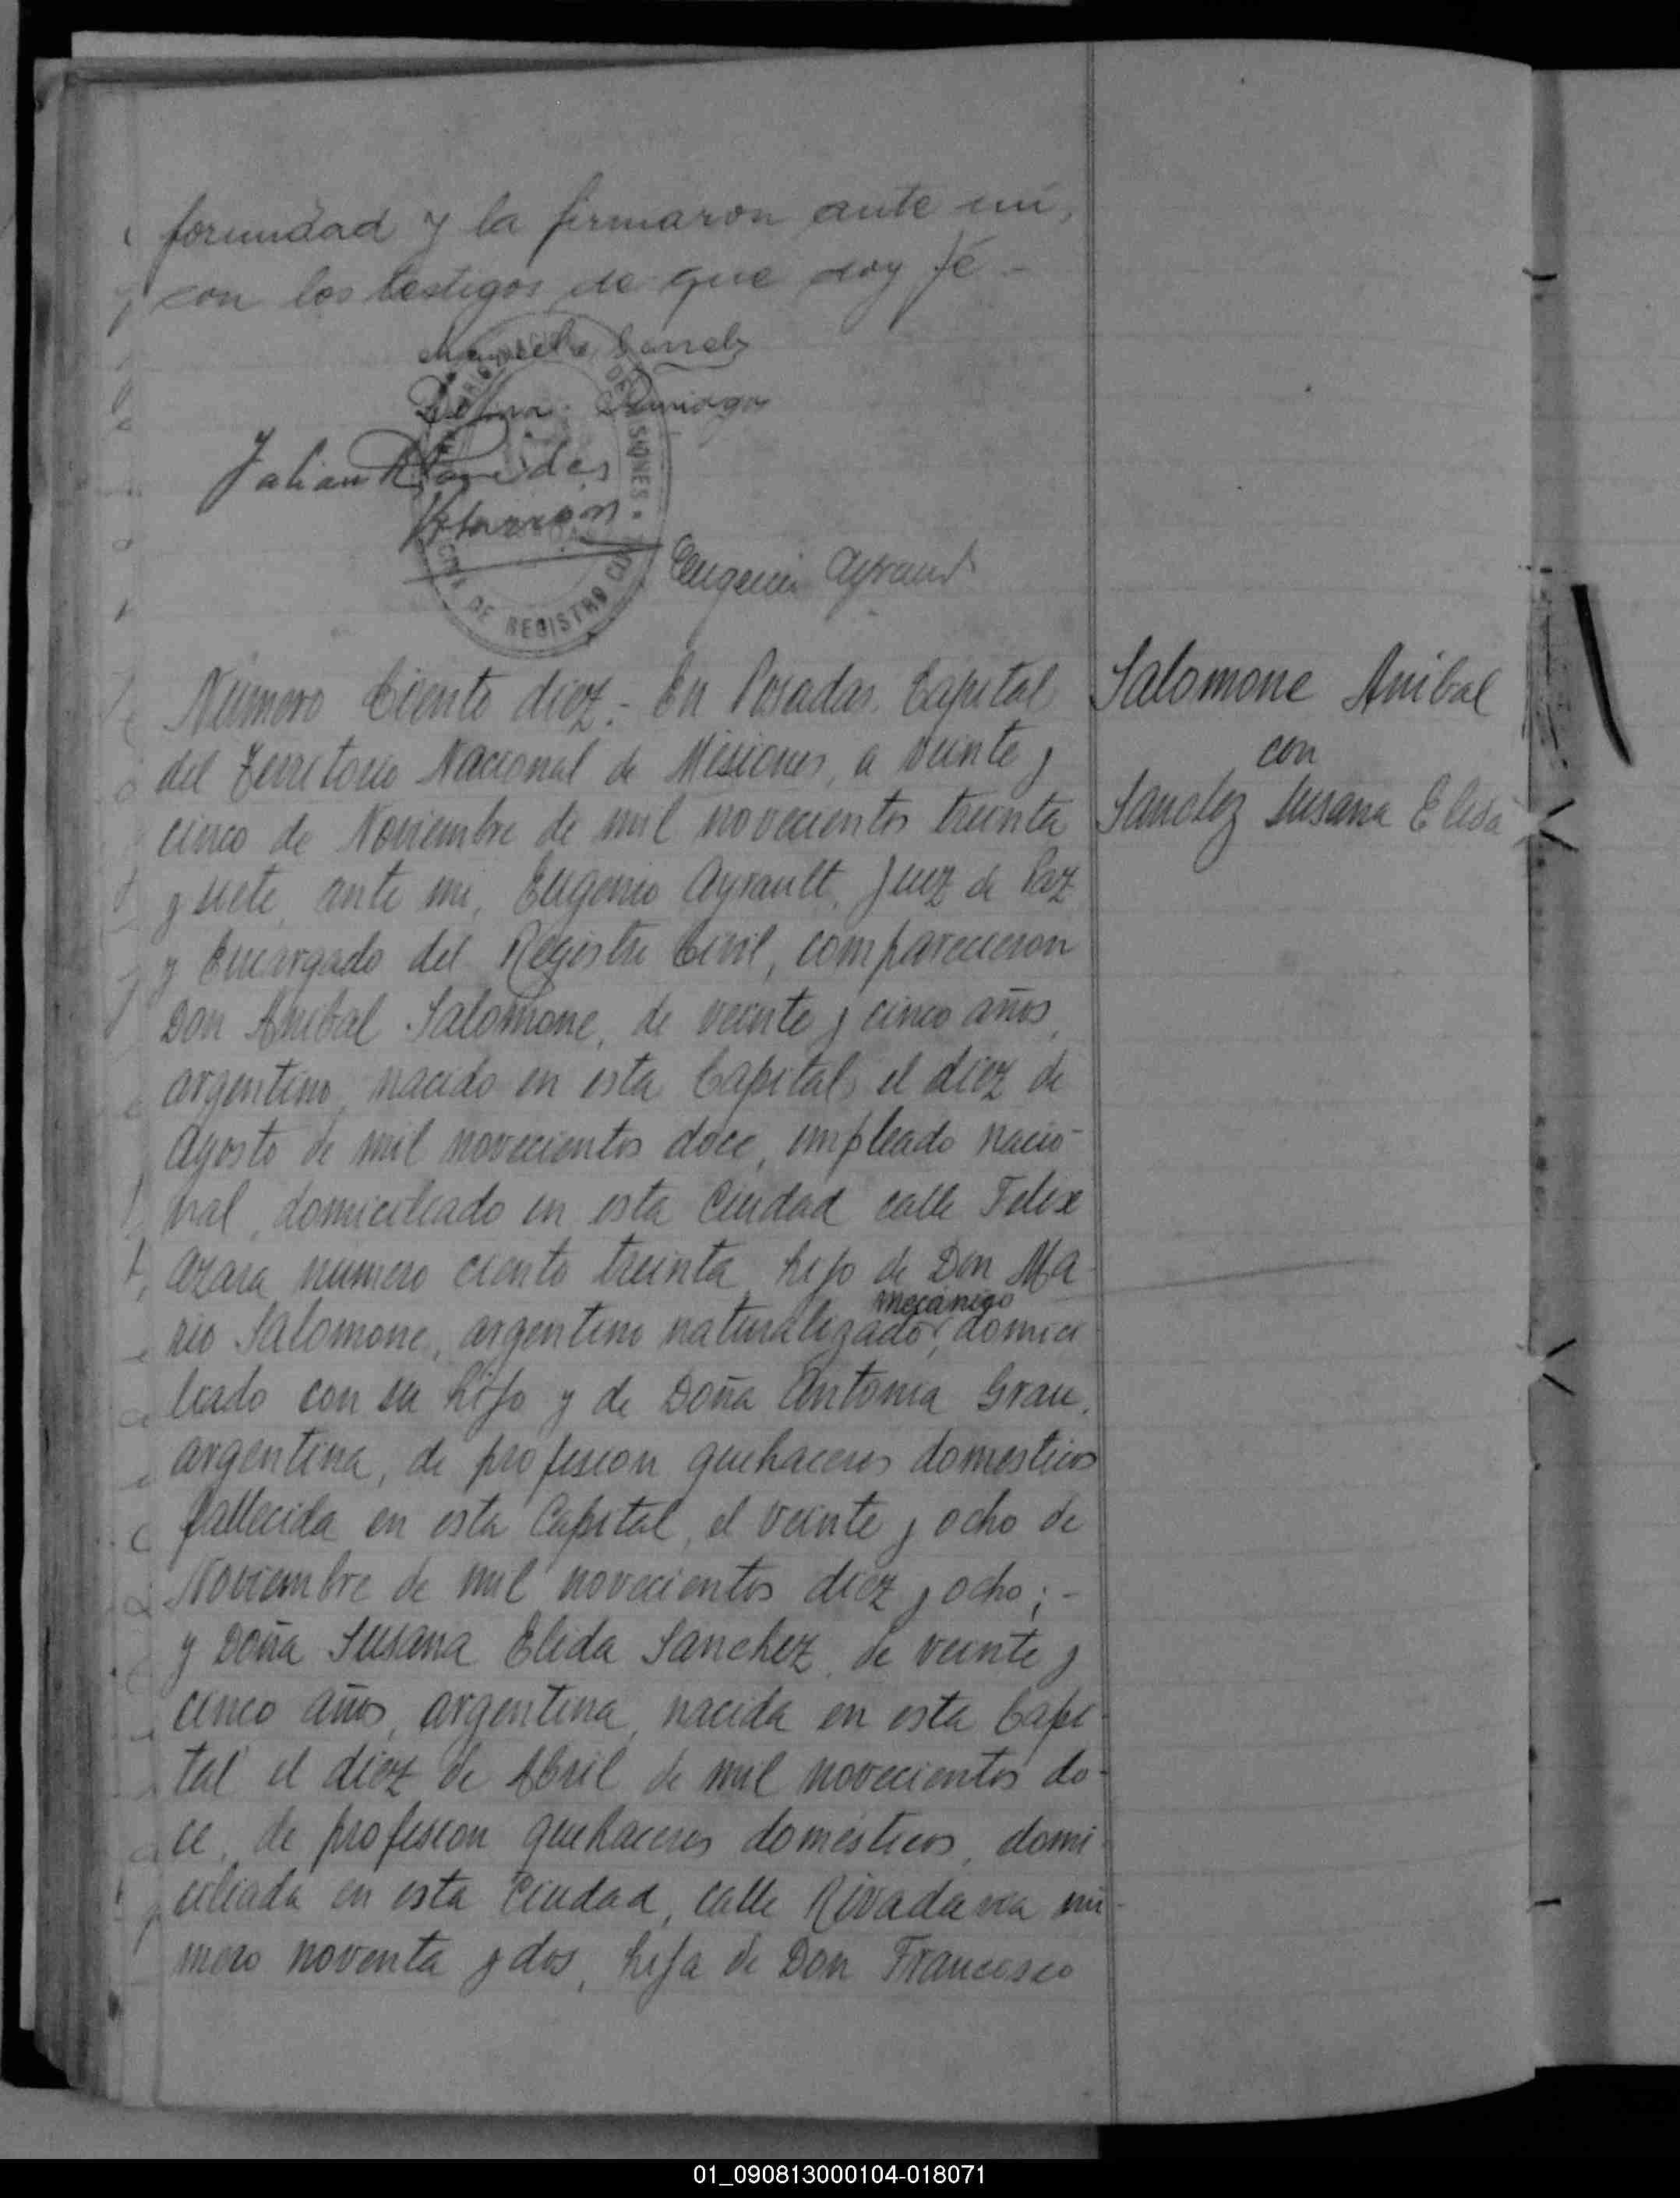 formidad y la firmaron ante mi,
con los testigos de que doy fé -
Eugenio Ayrault
DE MISIONES
DE REGISTRO
Número Ciento diez.- En Posadas Capital
del Territorio Nacional de Misiones, a veinte y
cinco de Noviembre de mil novecientos treinta
y siete, ante mi, Eugenio Ayrault, Juez de Paz
y Encargado del Registro Civil, comparecieron
Don Anibal Salomone, de veinte y cinco años,
argentino, nacido en esta Capital, el diez de
Agosto de mil novecientos doce, empleado nacio-
nal, domiciliado en esta Ciudad calle Felix
Azara numero ciento treinta, hijo de Don Ma-
mecánico
rio Salomone, argentino naturalizado, domici
liado con su hijo y de Doña Antonia Grau,
argentina, de profesion quehaceres domesticos
fallecida en esta Capital, el veinte y ocho de
Noviembre de mil novecientos diez y ocho; -
y Doña Susana Elida Sanchez, de veinte y
cinco años, argentina, nacida en esta Capi-
tal el diez de Abril de mil novecientos do-
ce, de profesion quehaceres domésticos, domi-
ciliada en esta Ciudad, calle Rivadavia nú-
mero noventa y dos, hija de Don Francisco
Salomone Anibal
con
Sanchez Susana Elida
01_090813000104-018071